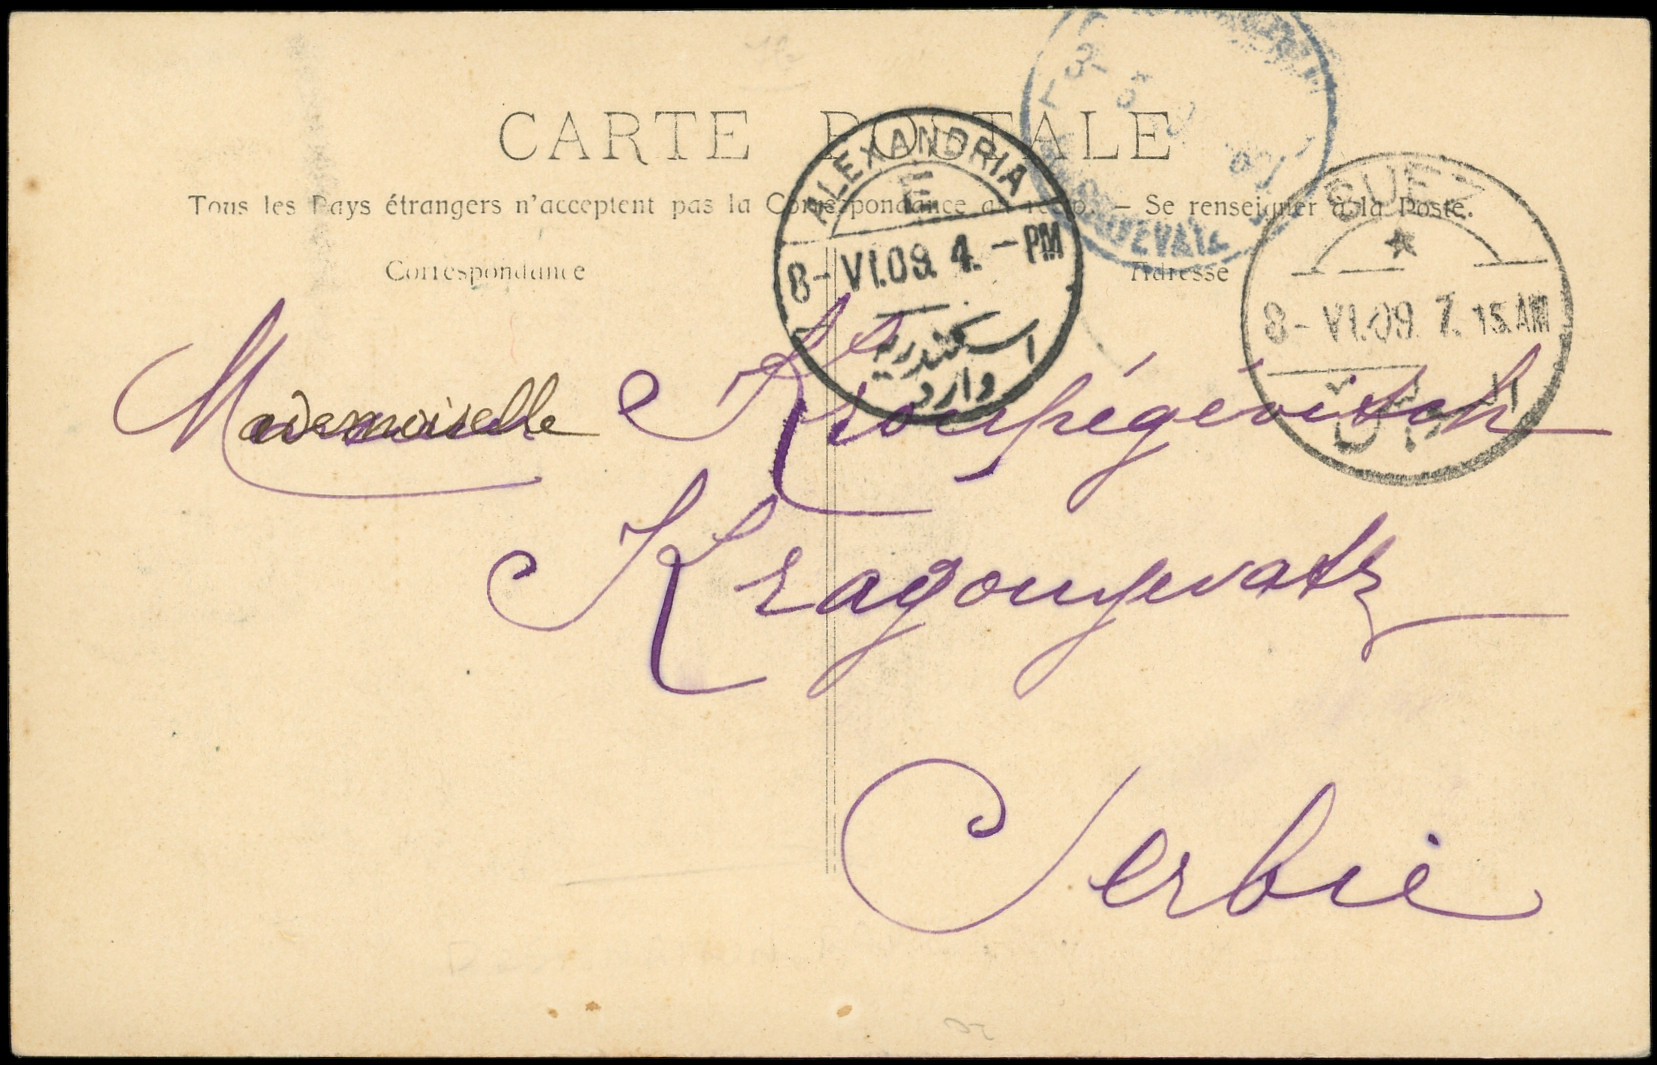 CARTE POSTALE
Tous les Pays étrangers n'acceptent pas la Correspondance au recto. — Se renseigner à la Poste.
Correspondance
Adresse
ALEXANDRIA
E
8-VI.09. 4.-PM
اسكندرية
وارد
SUEZ
8-VI.09. 7.15.AM
السويس
Mademoiselle Kroupégévitsch
Kragouyevatz
Serbie